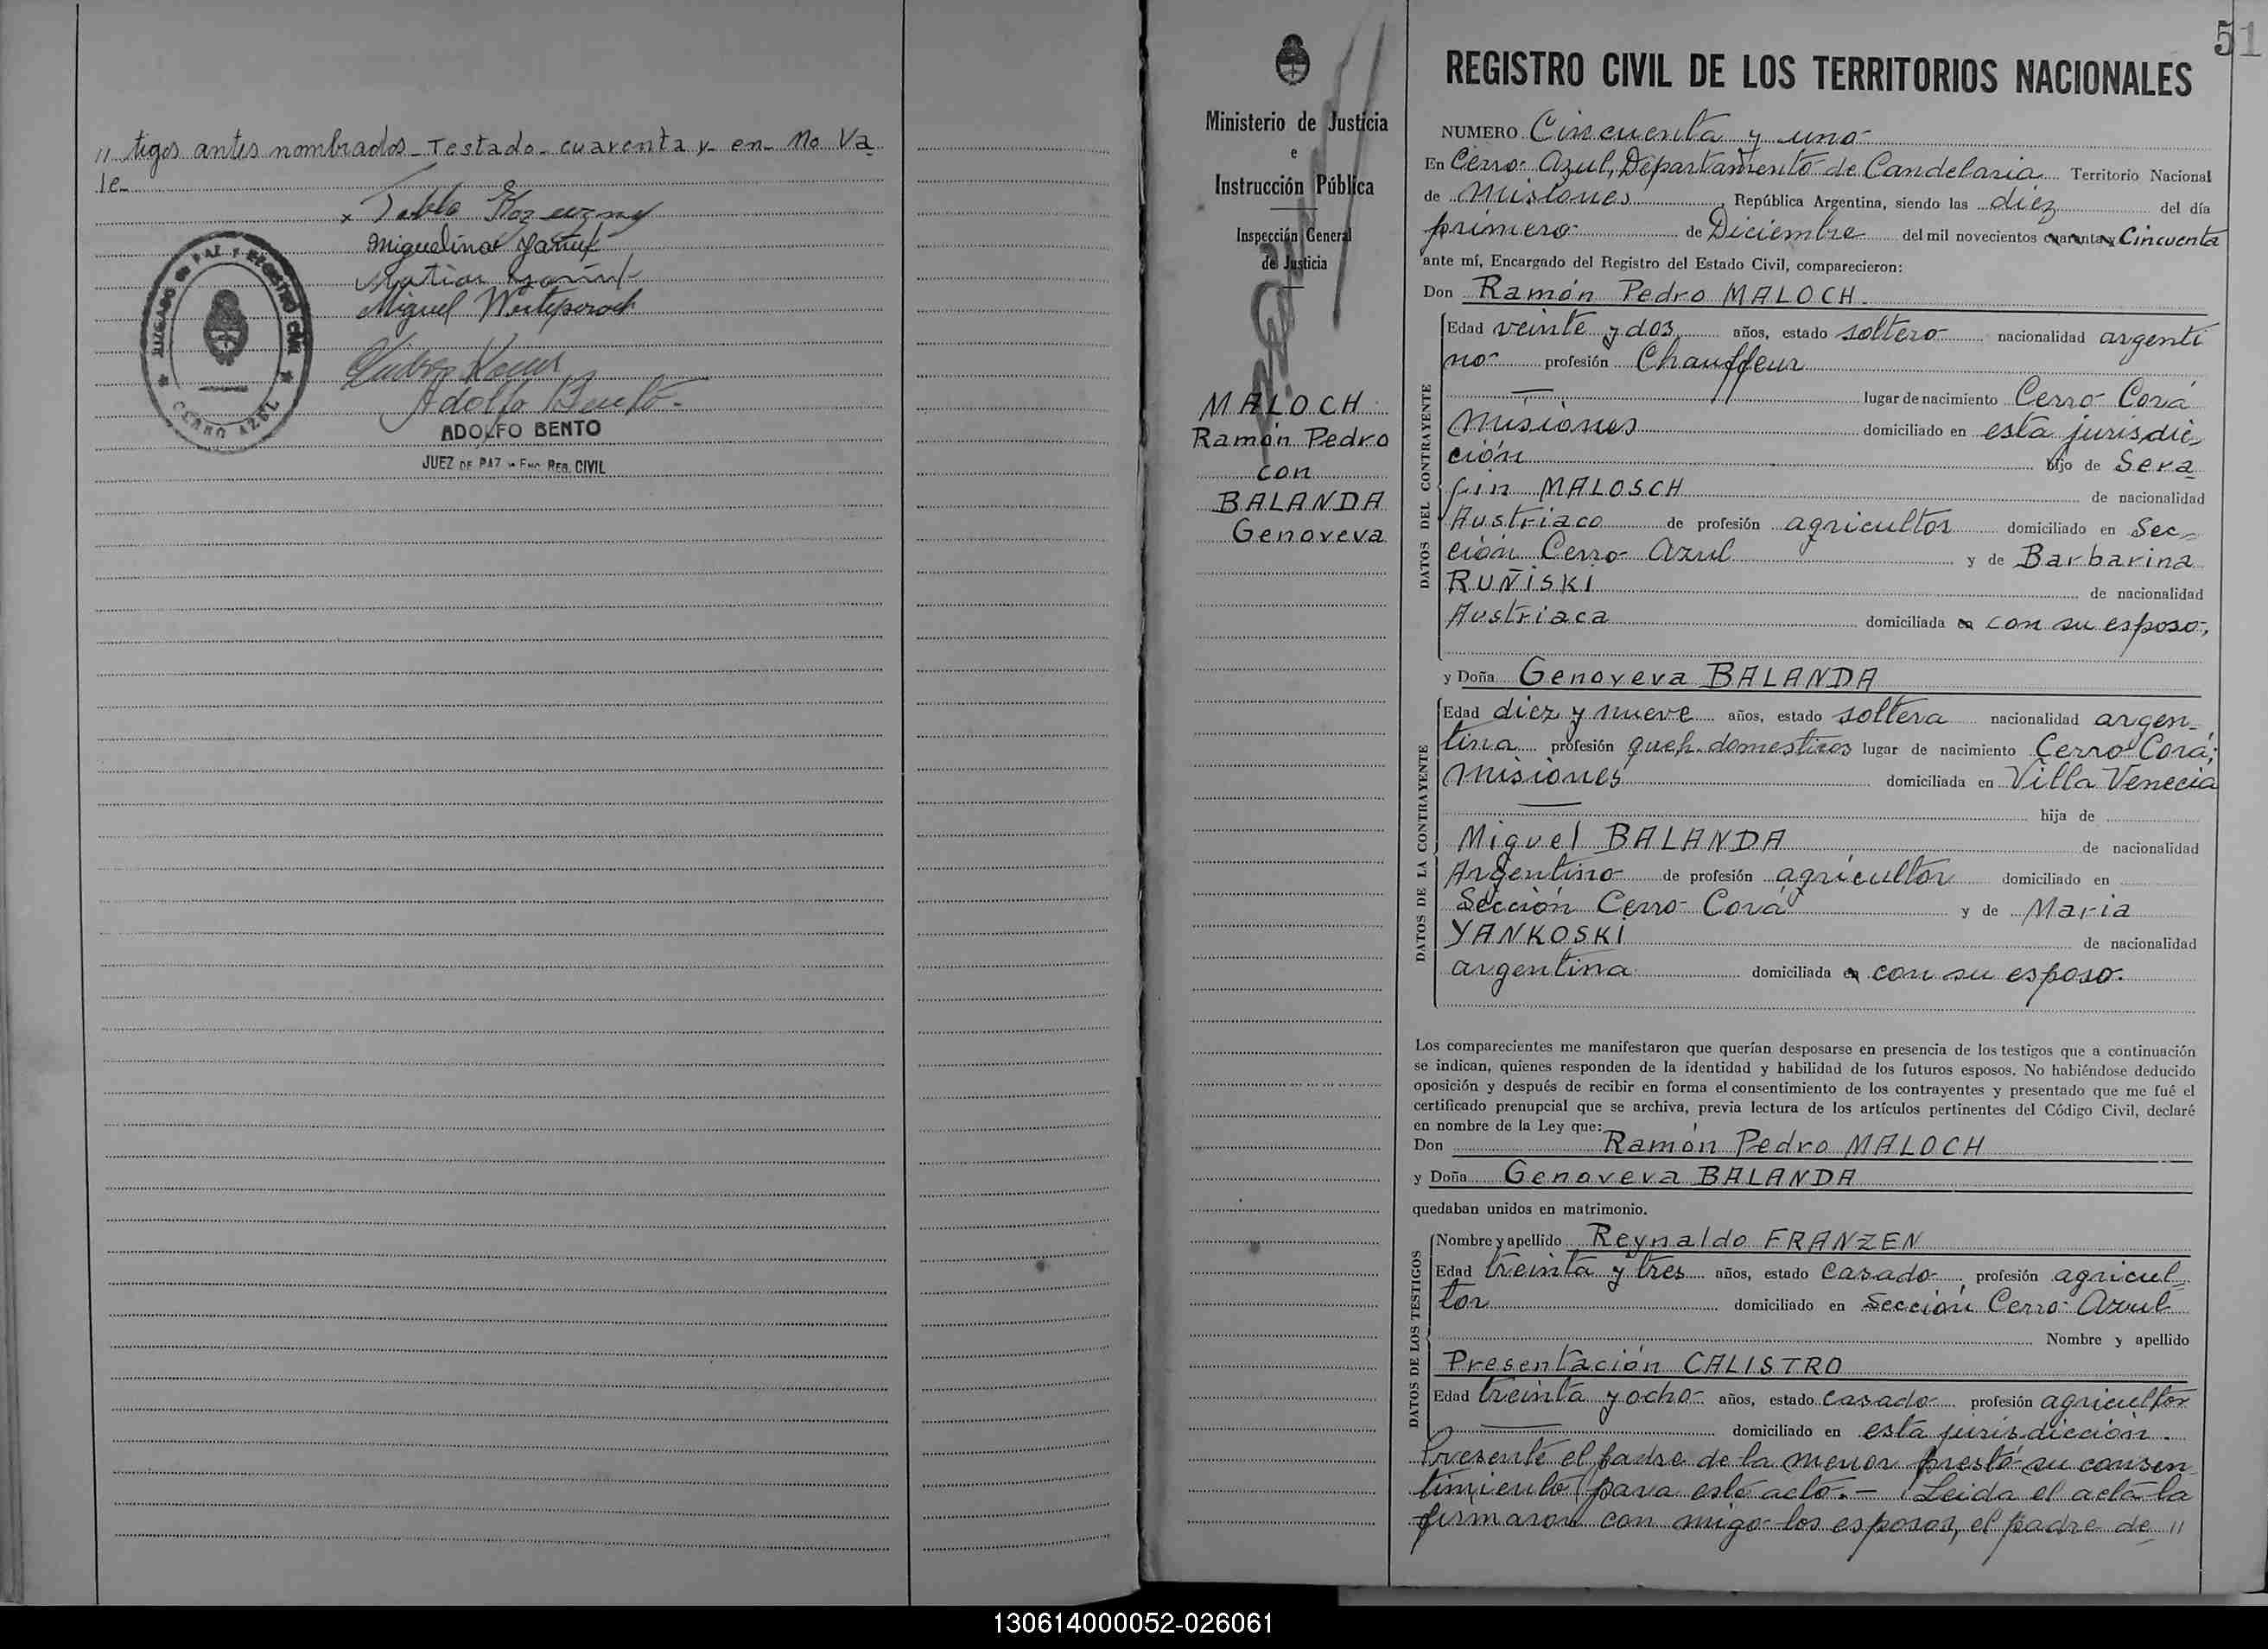 " tigos antes nombrados - Testado - cuarenta y - en - No Va
le -
Miguelina
Matias
Miguel
Adolfo Bento
ADOLFO BENTO
JUEZ DE PAZ y Enc. Reg. CIVIL
JUZGADO DE PAZ Y REGISTRO CIVIL
CERRO AZUL
51
Ministerio de Justicia
e
Instrucción Pública
Inspección General
de Justicia
MALOCH
Ramón Pedro
con
BALANDA
Genoveva
REGISTRO CIVIL DE LOS TERRITORIOS NACIONALES
NUMERO Cincuenta y uno
En Cerro Azul, Departamento de Candelaria Territorio Nacional
de Misiones, República Argentina, siendo las diez del día
primero de Diciembre del mil novecientos cuarenta y Cincuenta
ante mí, Encargado del Registro del Estado Civil, comparecieron:
Don Ramón Pedro MALOCH.
DATOS DEL CONTRAYENTE
Edad veinte y dos años, estado soltero nacionalidad argenti
no profesión Chauffeur
lugar de nacimiento Cerro Corá
Misiones domiciliado en esta jurisdic
ción hijo de Sera
fin MALOSCH de nacionalidad
Austriaco de profesión agricultor domiciliado en Sec
ción Cerro Azul y de Barbarina
RUÑISKI de nacionalidad
Austriaca domiciliada en con su esposo,
y Doña Genoveva BALANDA
DATOS DE LA CONTRAYENTE
Edad diez y nueve años, estado soltera nacionalidad argen-
tina profesión queh. domesticos lugar de nacimiento Cerro Corá,
Misiones domiciliada en Villa Venecia
hija de
Miguel BALANDA de nacionalidad
Argentino de profesión agricultor domiciliado en
Sección Cerro Corá y de Maria
YANKOSKI de nacionalidad
argentina domiciliada en con su esposo.
Los comparecientes me manifestaron que querían desposarse en presencia de los testigos que a continuación
se indican, quienes responden de la identidad y habilidad de los futuros esposos. No habiéndose deducido
oposición y después de recibir en forma el consentimiento de los contrayentes y presentado que me fué el
certificado prenupcial que se archiva, previa lectura de los artículos pertinentes del Código Civil, declaré
en nombre de la Ley que:
Don Ramón Pedro MALOCH
y Doña Genoveva BALANDA
quedaban unidos en matrimonio.
DATOS DE LOS TESTIGOS
Nombre y apellido Reynaldo FRANZEN
Edad treinta y tres años, estado casado profesión agricul
tor domiciliado en Sección Cerro Azul
Nombre y apellido
Presentación CALISTRO
Edad treinta y ocho años, estado casado profesión agricultor
domiciliado en esta jurisdicción.
Presente el padre de la menor prestó su consen
timiento para este acto. - Leida el acta la
firmaron con migo los esposos, el padre de "
130614000052-026061